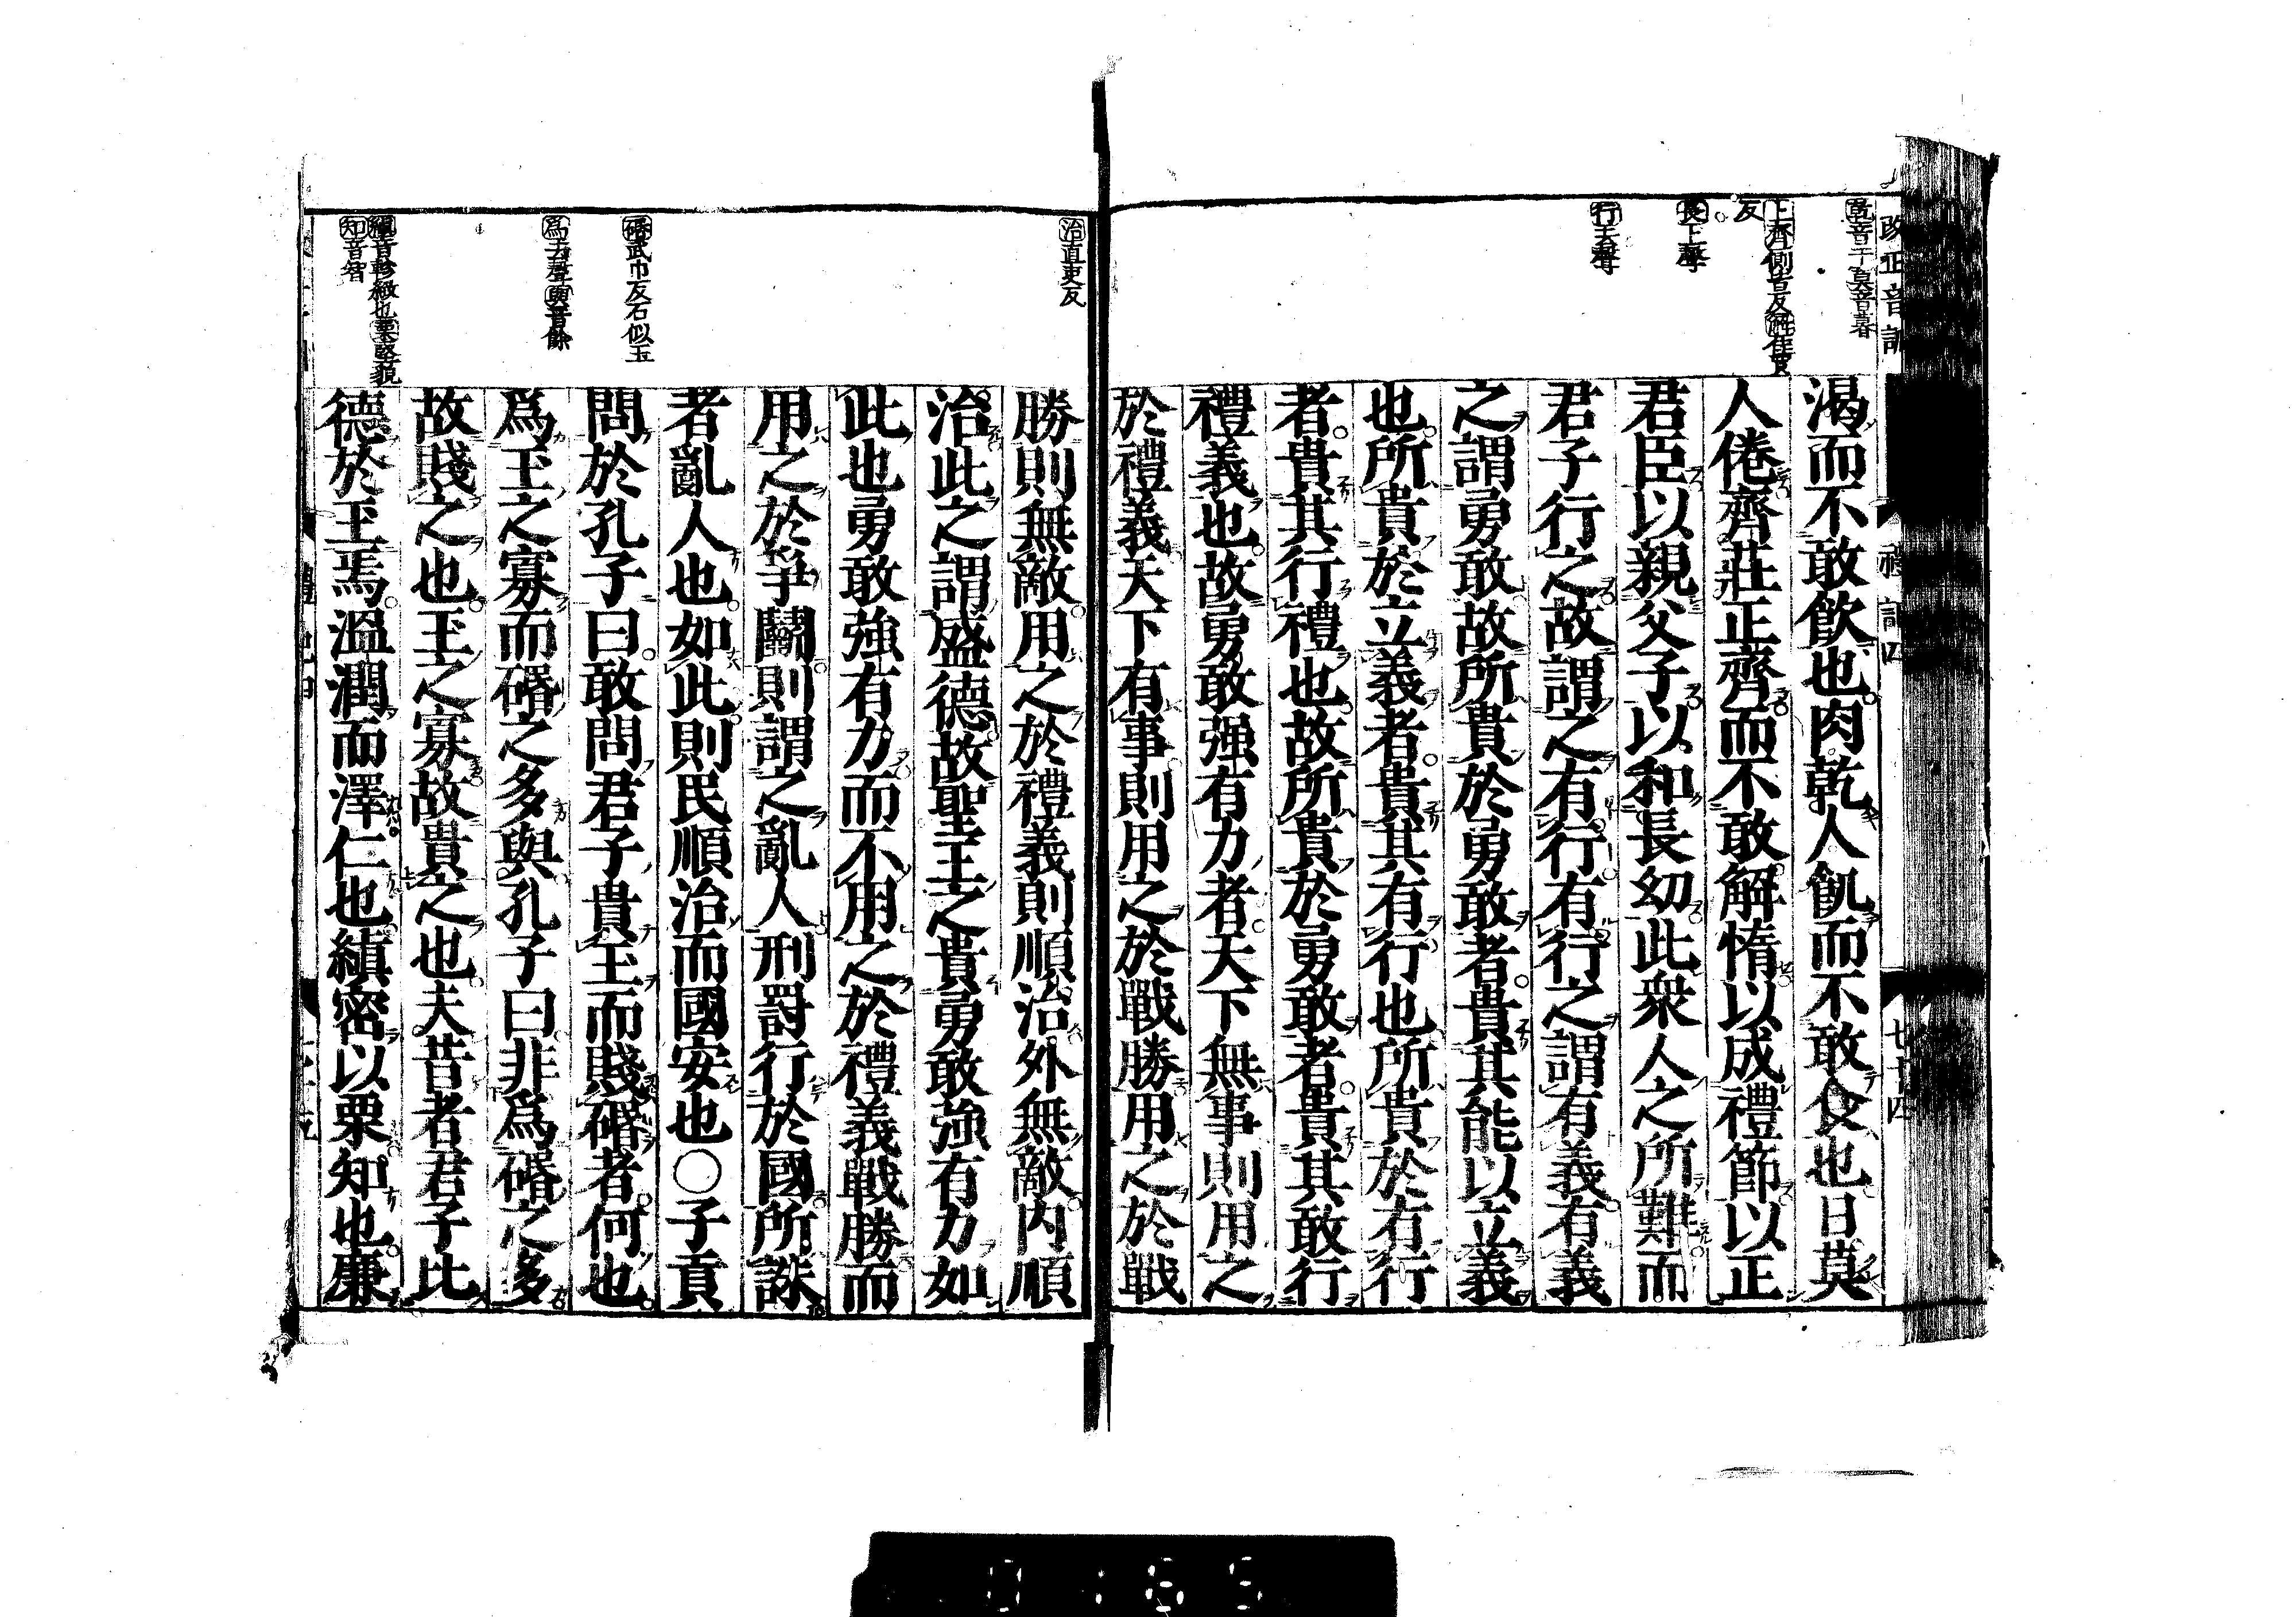 改正音訓
禮記四
七十四
乾音干莫音暮
上齊側皆反解佳買
反
長上聲
行去聲
渴而不敢飲也肉乾人飢而不敢食也日莫
人倦齊莊正齊而不敢解惰以成禮節以正
君臣以親父子以和長幼此衆人之所難而
君子行之故謂之有行有行之謂有義有義
之謂勇敢故所貴於勇敢者貴其能以立義
也所貴於立義者貴其有行也所貴於有行
者貴其行禮也故所貴於勇敢者貴其敢行
禮義也故勇敢强有力者天下無事則用之
於禮義天下有事則用之於戰勝用之於戰
治直吏反
碈武巾反石似玉
爲去聲與音餘
縝音軫緻也栗堅貌
知音智
勝則無敵用之於禮義則順治外無敵内順
治此之謂盛德故聖王之貴勇敢強有力如
此也勇敢強有力而不用之於禮義戰勝而
用之於爭鬭則謂之亂人刑罸行於國所誅
者亂人也如此則民順治而國安也〇子貢
問於孔子曰敢問君子貴玉而賤碈者何也
爲玉之寡而碈之多與孔子曰非爲碈之多
故賤之也玉之寡故貴之也夫昔者君子比
德於玉焉溫潤而澤仁也縝密以栗知也廉